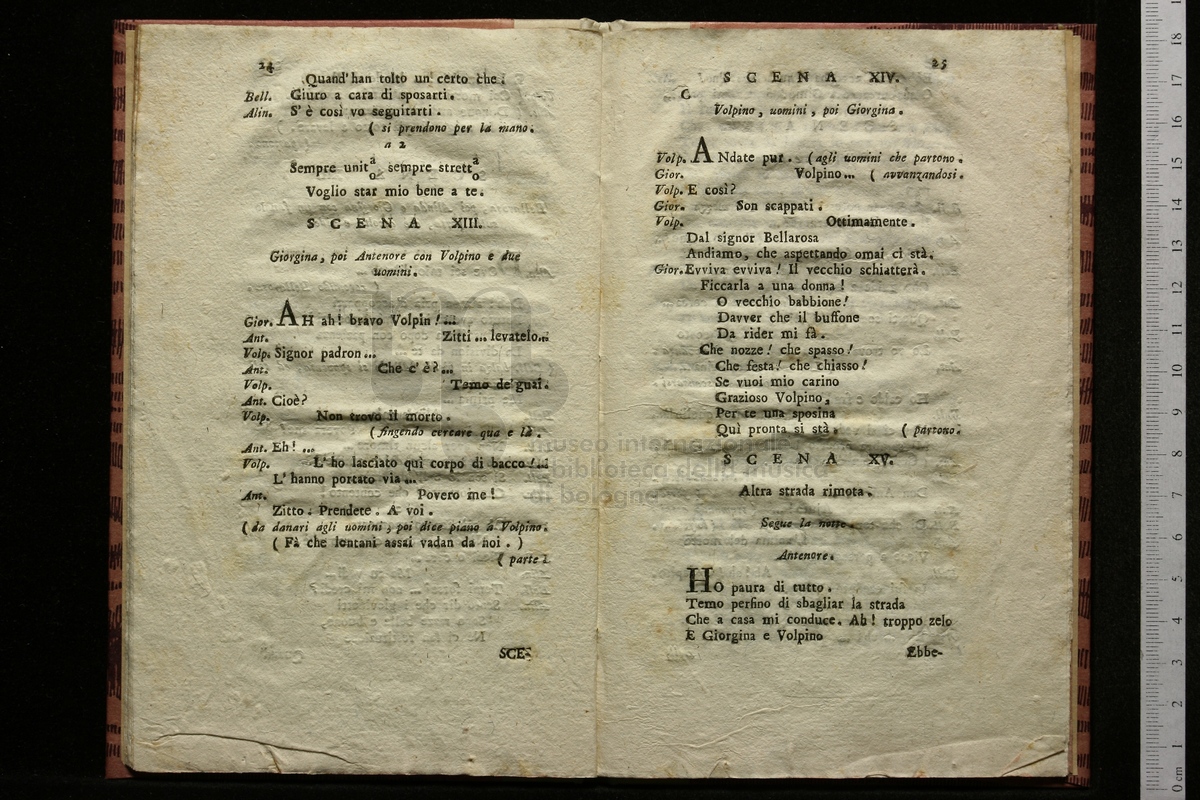 24
Quand' han tolto un certo che.
Bell. Giuro a cara di sposarti.
Alin. S' è così vo seguitarti.
( si prendono per la mano.
a 2
Sempre unita/o, sempre stretta/o
Voglio star mio bene a te.
SCENA XIII.
Giorgina, poi Antenore con Volpino e due
uomini.
Gior. AH ah! bravo Volpin!...
Ant. Zitti... levatelo...
Volp. Signor padron...
Ant. Che c' è?...
Volp. Temo de' guai.
Ant. Cioè?
Volp. Non trovo il morto.
( fingendo cercare qua e là.
Ant. Eh! ...
Volp. L' ho lasciato quì corpo di bacco!...
L' hanno portato via...
Ant. Povero me!
Zitto. Prendete. A voi.
( da danari agli uomini, poi dice piano a Volpino.
( Fà che lontani assai vadan da noi. )
( parte
SCE-
25
SCENA XIV.
Volpino, uomini, poi Giorgina.
Volp. ANdate pur. ( agli uomini che partono.
Gior. Volpino... ( avvanzandosi.
Volp. E così?
Gior. Son scappati.
Volp. Ottimamente.
Dal signor Bellarosa
Andiamo, che aspettando omai ci stà.
Gior. Evviva evviva! Il vecchio schiatterà.
Ficcarla a una donna!
O vecchio babbione!
Davver che il buffone
Da rider mi fà.
Che nozze! che spasso!
Che festa! che chiasso!
Se vuoi mio carino
Grazioso Volpino,
Per te una sposina
Quì pronta si stà. ( partono.
SCENA XV.
Altra strada rimota.
Segue la notte.
Antenore.
HO paura di tutto.
Temo perfino di sbagliar la strada
Che a casa mi conduce. Ah! troppo zelo
E Giorgina e Volpino
Ebbe-
museo internazionale
e biblioteca della musica
di bologna
0 cm 1 2 3 4 5 6 7 8 9 10 11 12 13 14 15 16 17 18